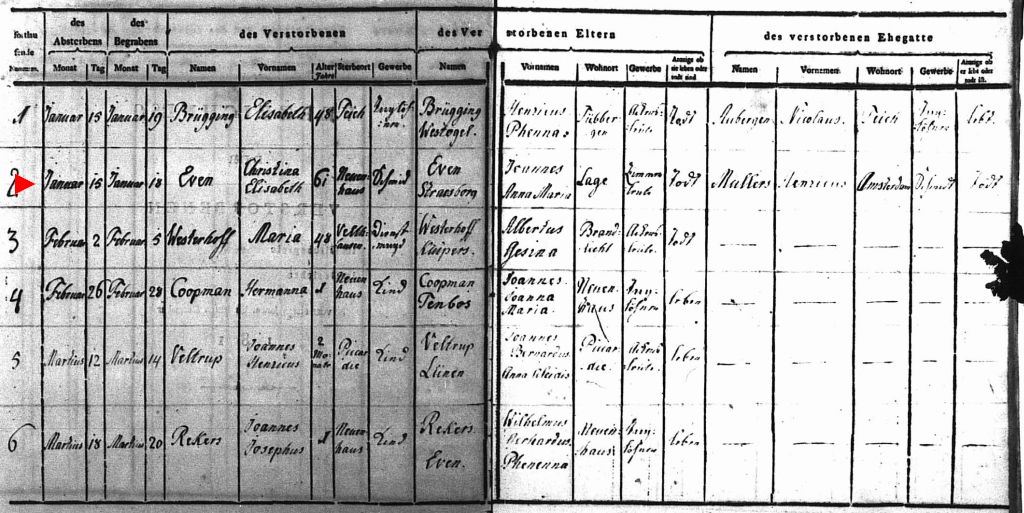 des Absterbens des Begrabens des Verstorbenen des Verstorbenen Eltern des verstorbenen Ehegatte
Monat Tag Monat Tag Namen Vornamen Alter Jahre Sterbeort Gewerbe Namen Vornamen Wohnort Gewerbe Anzeige ob sie leben oder todt sind Namen Vornamen Wohnort Gewerbe Anzeige ob er lebt oder todt ist.
1 Januar 15 Januar 19 Brügging Elisabeth 48 Teich Brügging Henricus Todt Aubergen Nicolaus Teich Lebt
Westogel. Phenna
2 Januar 15 Januar 18 Even Christina 61 Neuen Schmid Even Joannes Lage Todt Mullers Henricus Amsterdam Schmidt Todt
Elisabeth haus Strasberg Anna Maria
3 Februar 2 Februar 5 Westerhoff Maria 48 Dienst Westerhoff Albertus Brand Todt — — — — —
hausen magd Küipers. Gesina licht
4 Februar 26 Februar 28 Coopman Hermanna 1 Neuen Kind Coopman Joannes Neuen leben — — — — —
haus Tenbos Joanna haus
Maria
5 Martius 12 Martius 14 Veltrup Joannes 2 Picar Kind Veltrup Joannes Picar leben — — — — —
Henricus Monate die Lünen Bernardus die
Anna Aleidis
6 Martius 18 Martius 20 Rekers Joannes 1 Neuen Kind Rekers Wilhelmus Neuen leben — — — — —
Josephus haus Even. Gerhardus haus
Phenenna